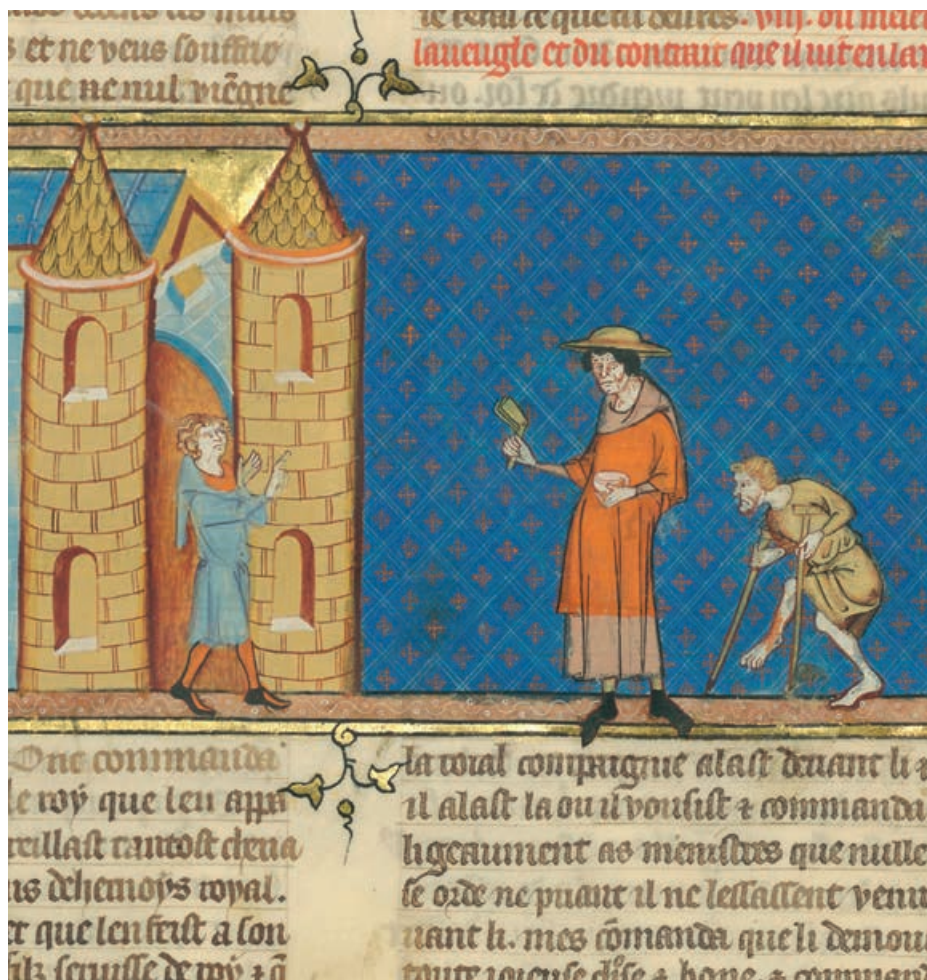 s et ne veus souffrir
que ne nul viēgne
ce que tu desires. viij. du mesel
laveugle et du contrait que il vit en la
Onc commanda
le roy que len appa
reillast tantost cheva
us dehernoys royal.
et que len feist a son
filz servisse de roy ⁊
la roial compaignie alast devant li ⁊
il alast la ou il vousist ⁊ commanda
ligeaument as menistres que nulle
se orde ne puant il ne lessassent venir
vant li. mes cōmanda que li
toute joieuse chose ⁊ bone, ⁊